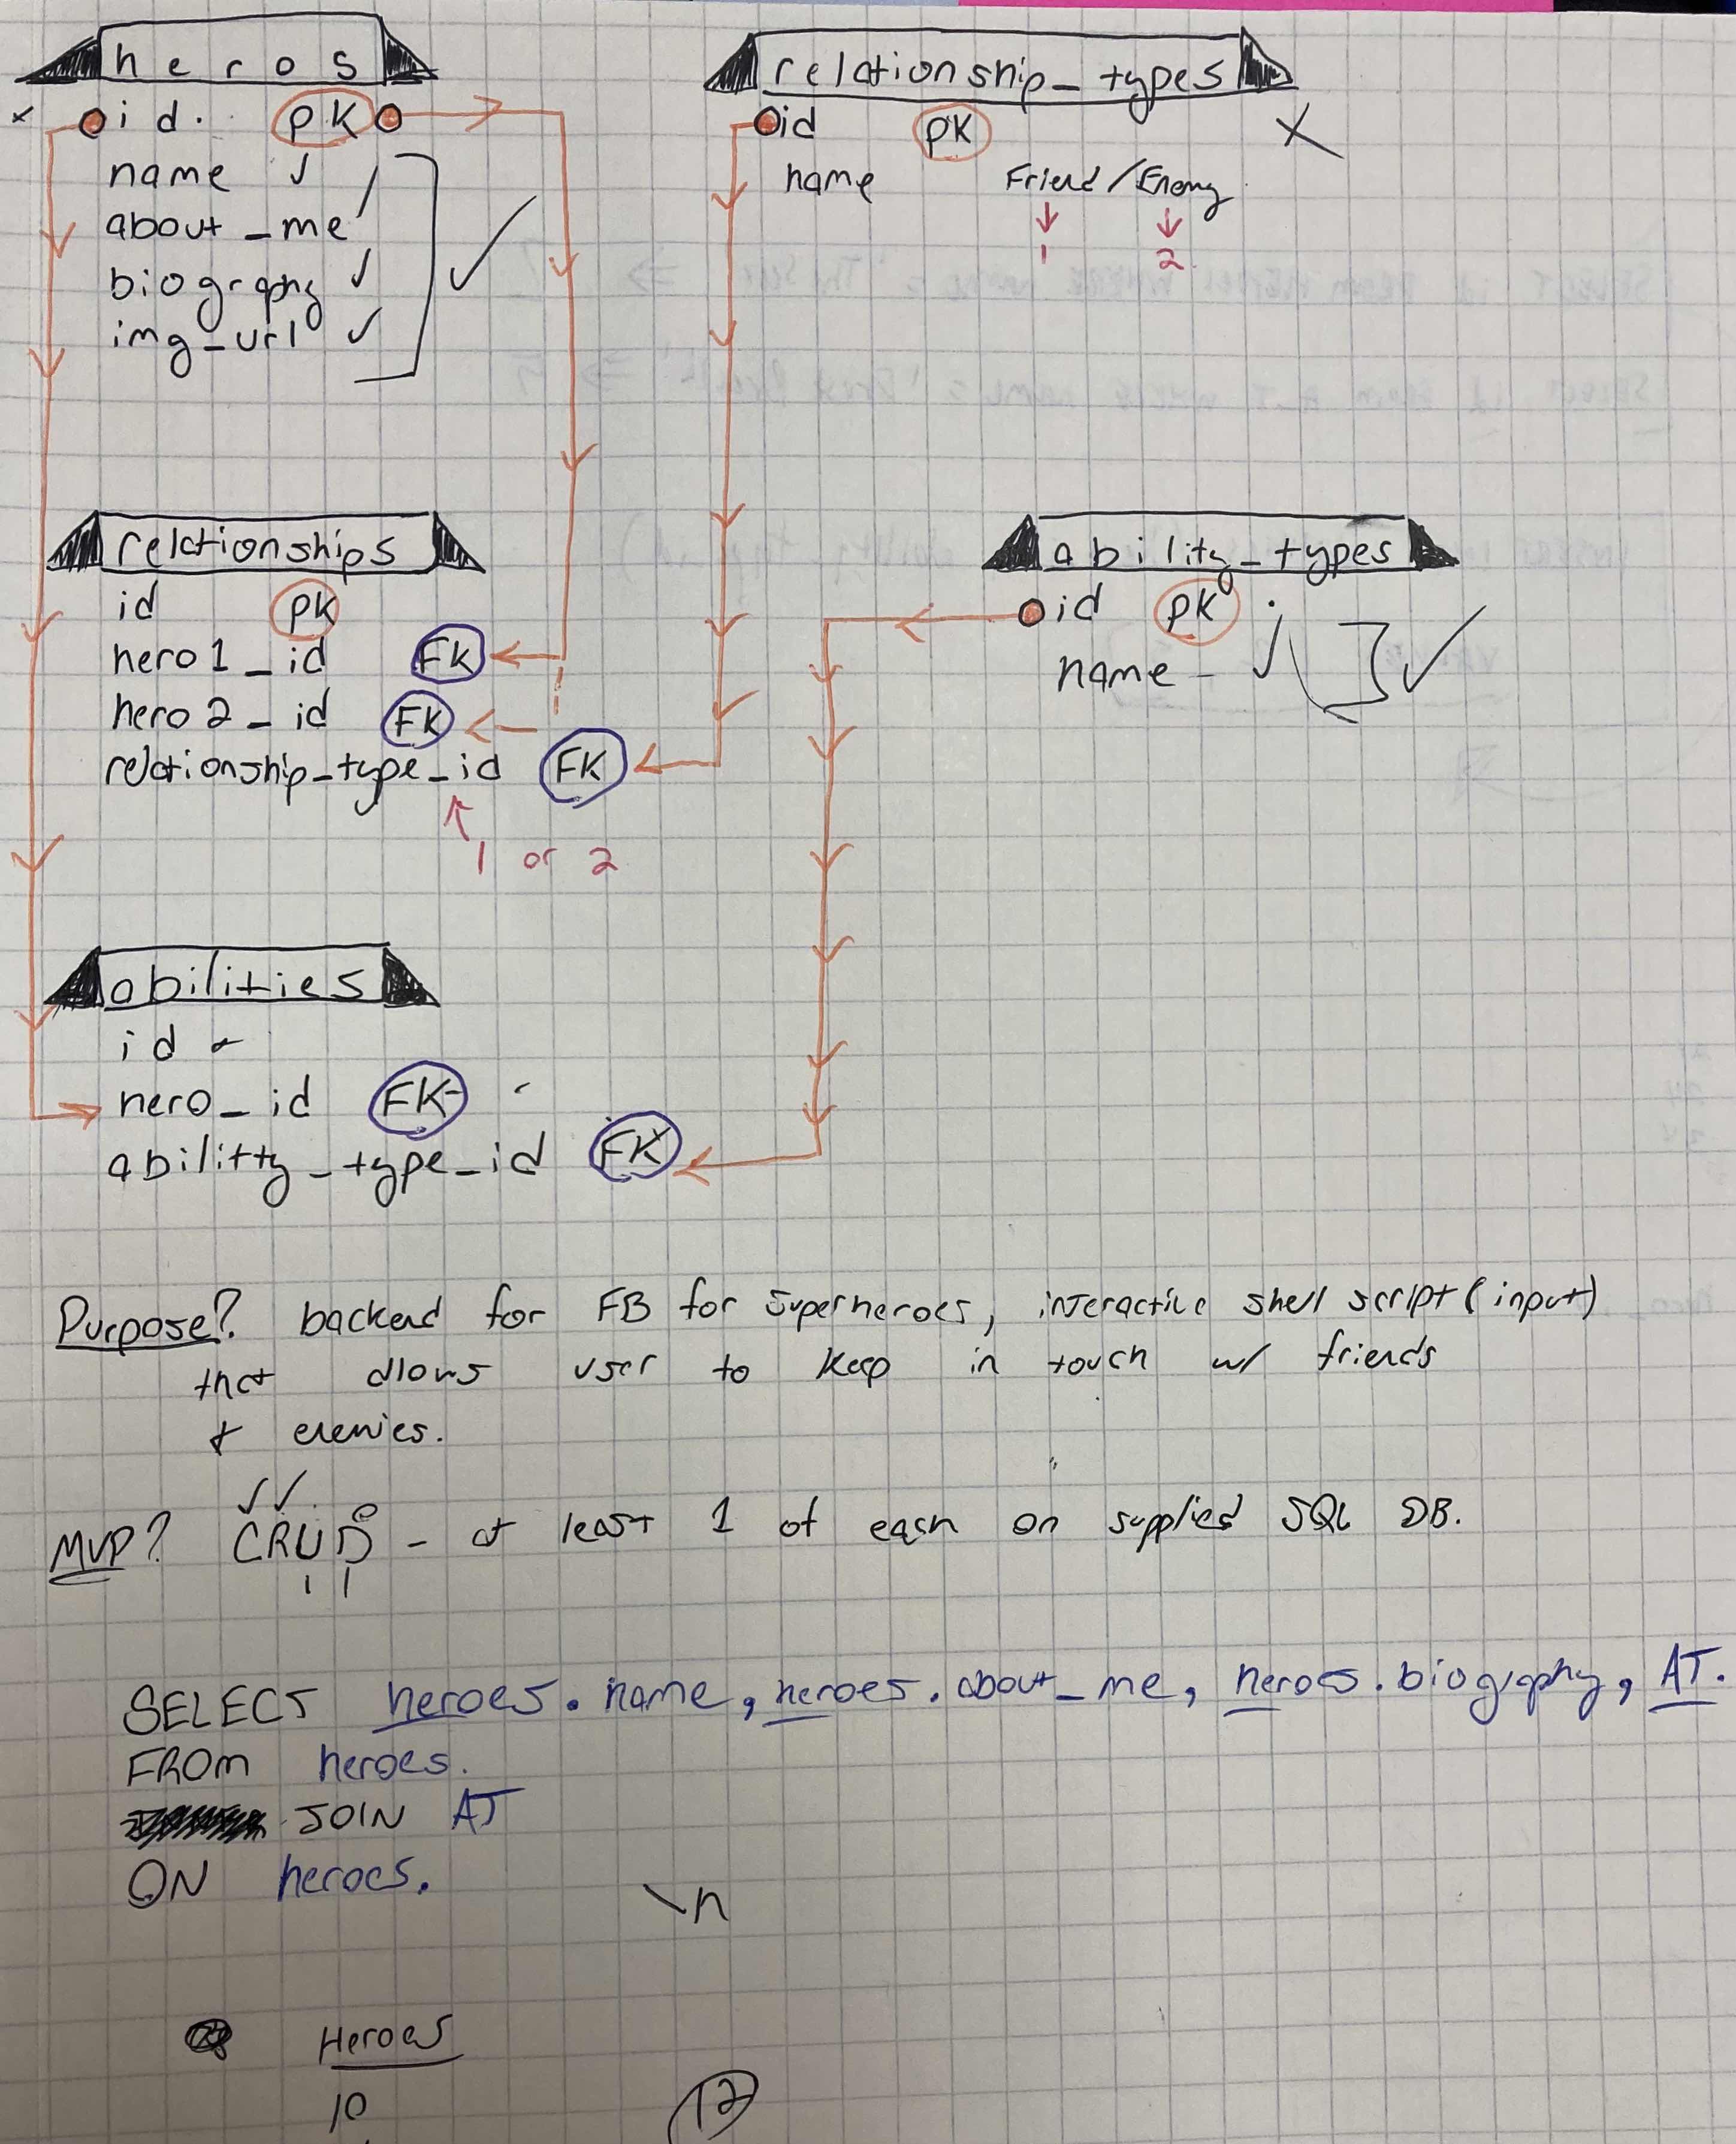 heros
id. PK
name
about_me
biography
img_url
relationship_types
id PK
name Friend/Enemy
1 2
relationships
id PK
hero1_id FK
hero2_id FK
relationship_type_id FK
1 or 2
ability_types
id PK
name
abilities
id
hero_id FK
abilitty_type_id FK
Purpose? backend for FB for superheroes, interactive shell script (input)
that allows user to keep in touch w/ friends
+ enemies.
MVP? CRUD - at least 1 of each on supplied SQL DB.
SELECT heroes.name, heroes.about_me, heroes.biography, AT.
FROM heroes.
JOIN AT
ON heroes.
\n
Heroes
10
12